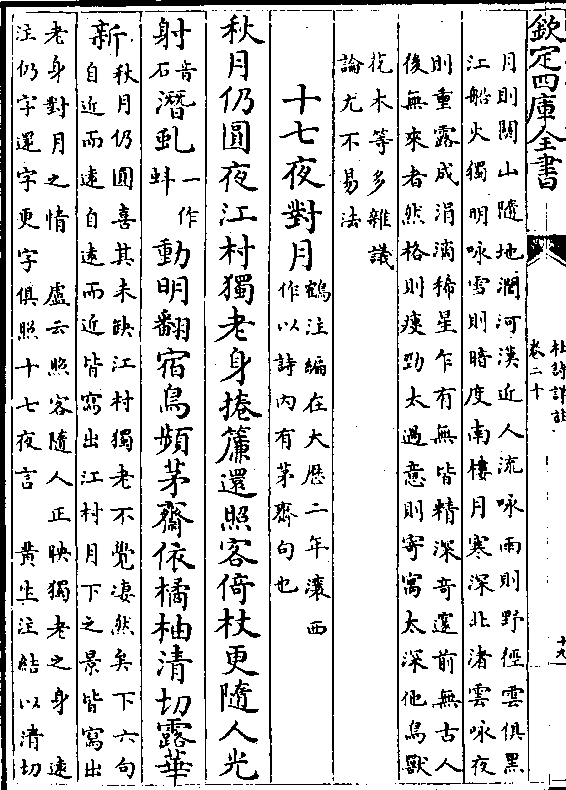 欽定四庫全書
杜詩詳註
卷二十
十九
月則關山隨地濶河漢近人流咏雨則野徑雲俱黑
江船火獨明咏雪則暗度南樓月寒深北渚雲咏夜
則重露成涓滴稀星乍有無皆精深奇邃前無古人
後無來者然格則瘦勁太過意則寄寓太深他鳥獸
花木等多雜議
論尤不易法
十七夜對月
鶴注編在大厯二年瀼西
作以詩内有茅齋句也
秋月仍圓夜江村獨老身捲簾還照客倚杖更隨人光
射音石潛虬一作蚪動明翻宿鳥頻茅齋依橘柚清切露華
新
秋月仍圓喜其未缺江村獨老不覺凄然矣下六句
自近而遠自遠而近皆寫出江村月下之景皆寫出
老身對月之情　盧云照客隨人正映獨老之身　遠
注仍字還字更字俱照十七夜言　黄生注結以清切